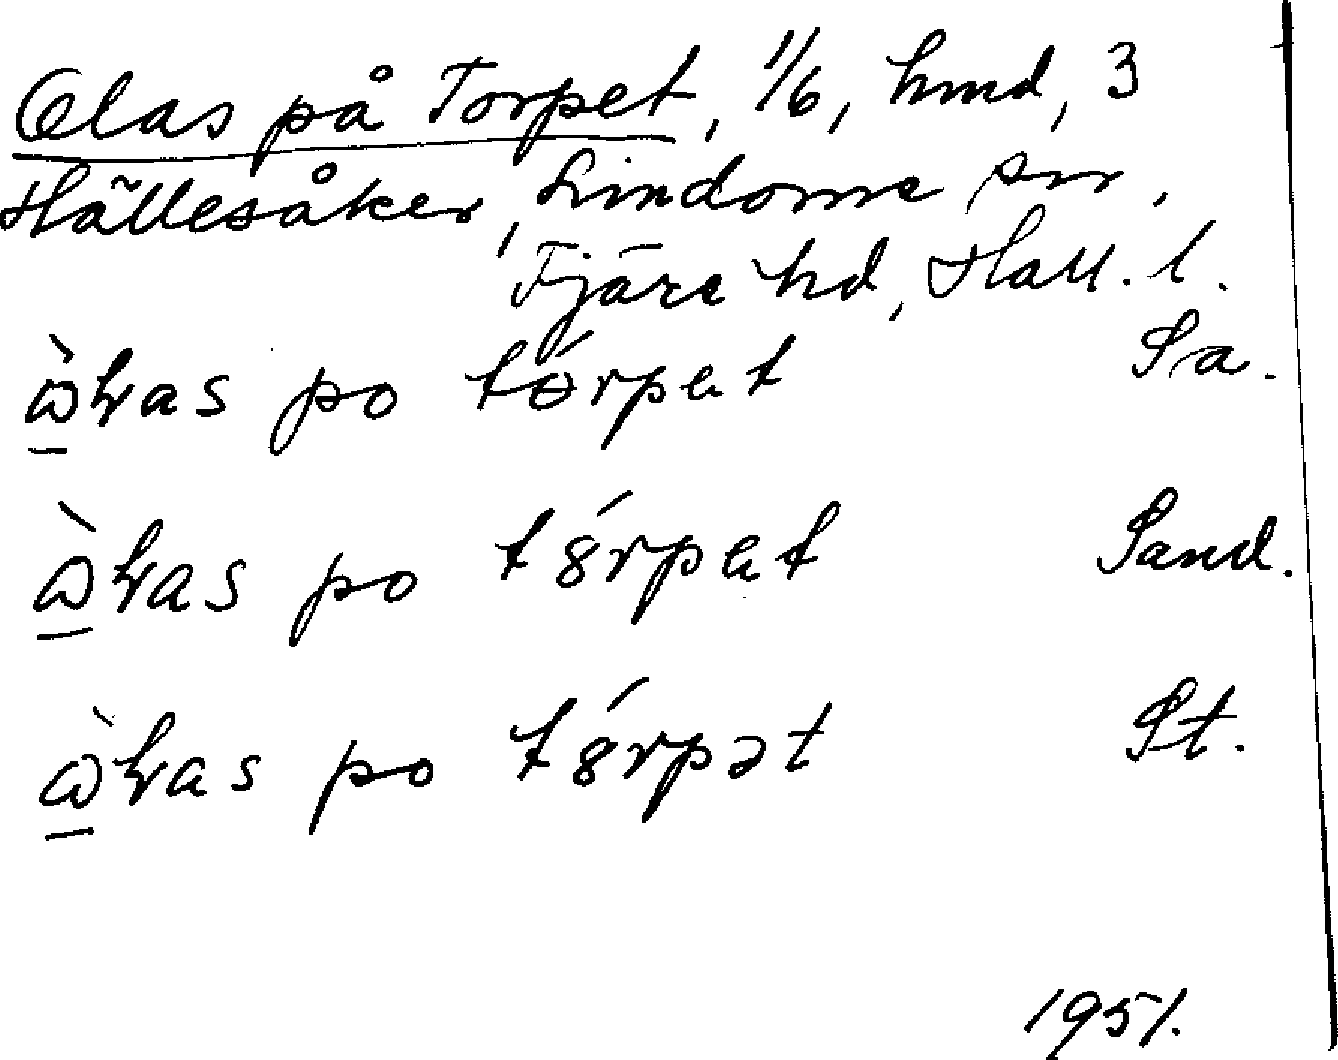 Olas på Torpet, 1/6, hmd, 3
Hällesåker, Lindome sn,
Fjäre hd, Hall. l.
ὼɫas po tɵ́rpet Sa.
ὼɫas po t8́rpet Sand.
ὼɫas po t8́rpət St.
1951.